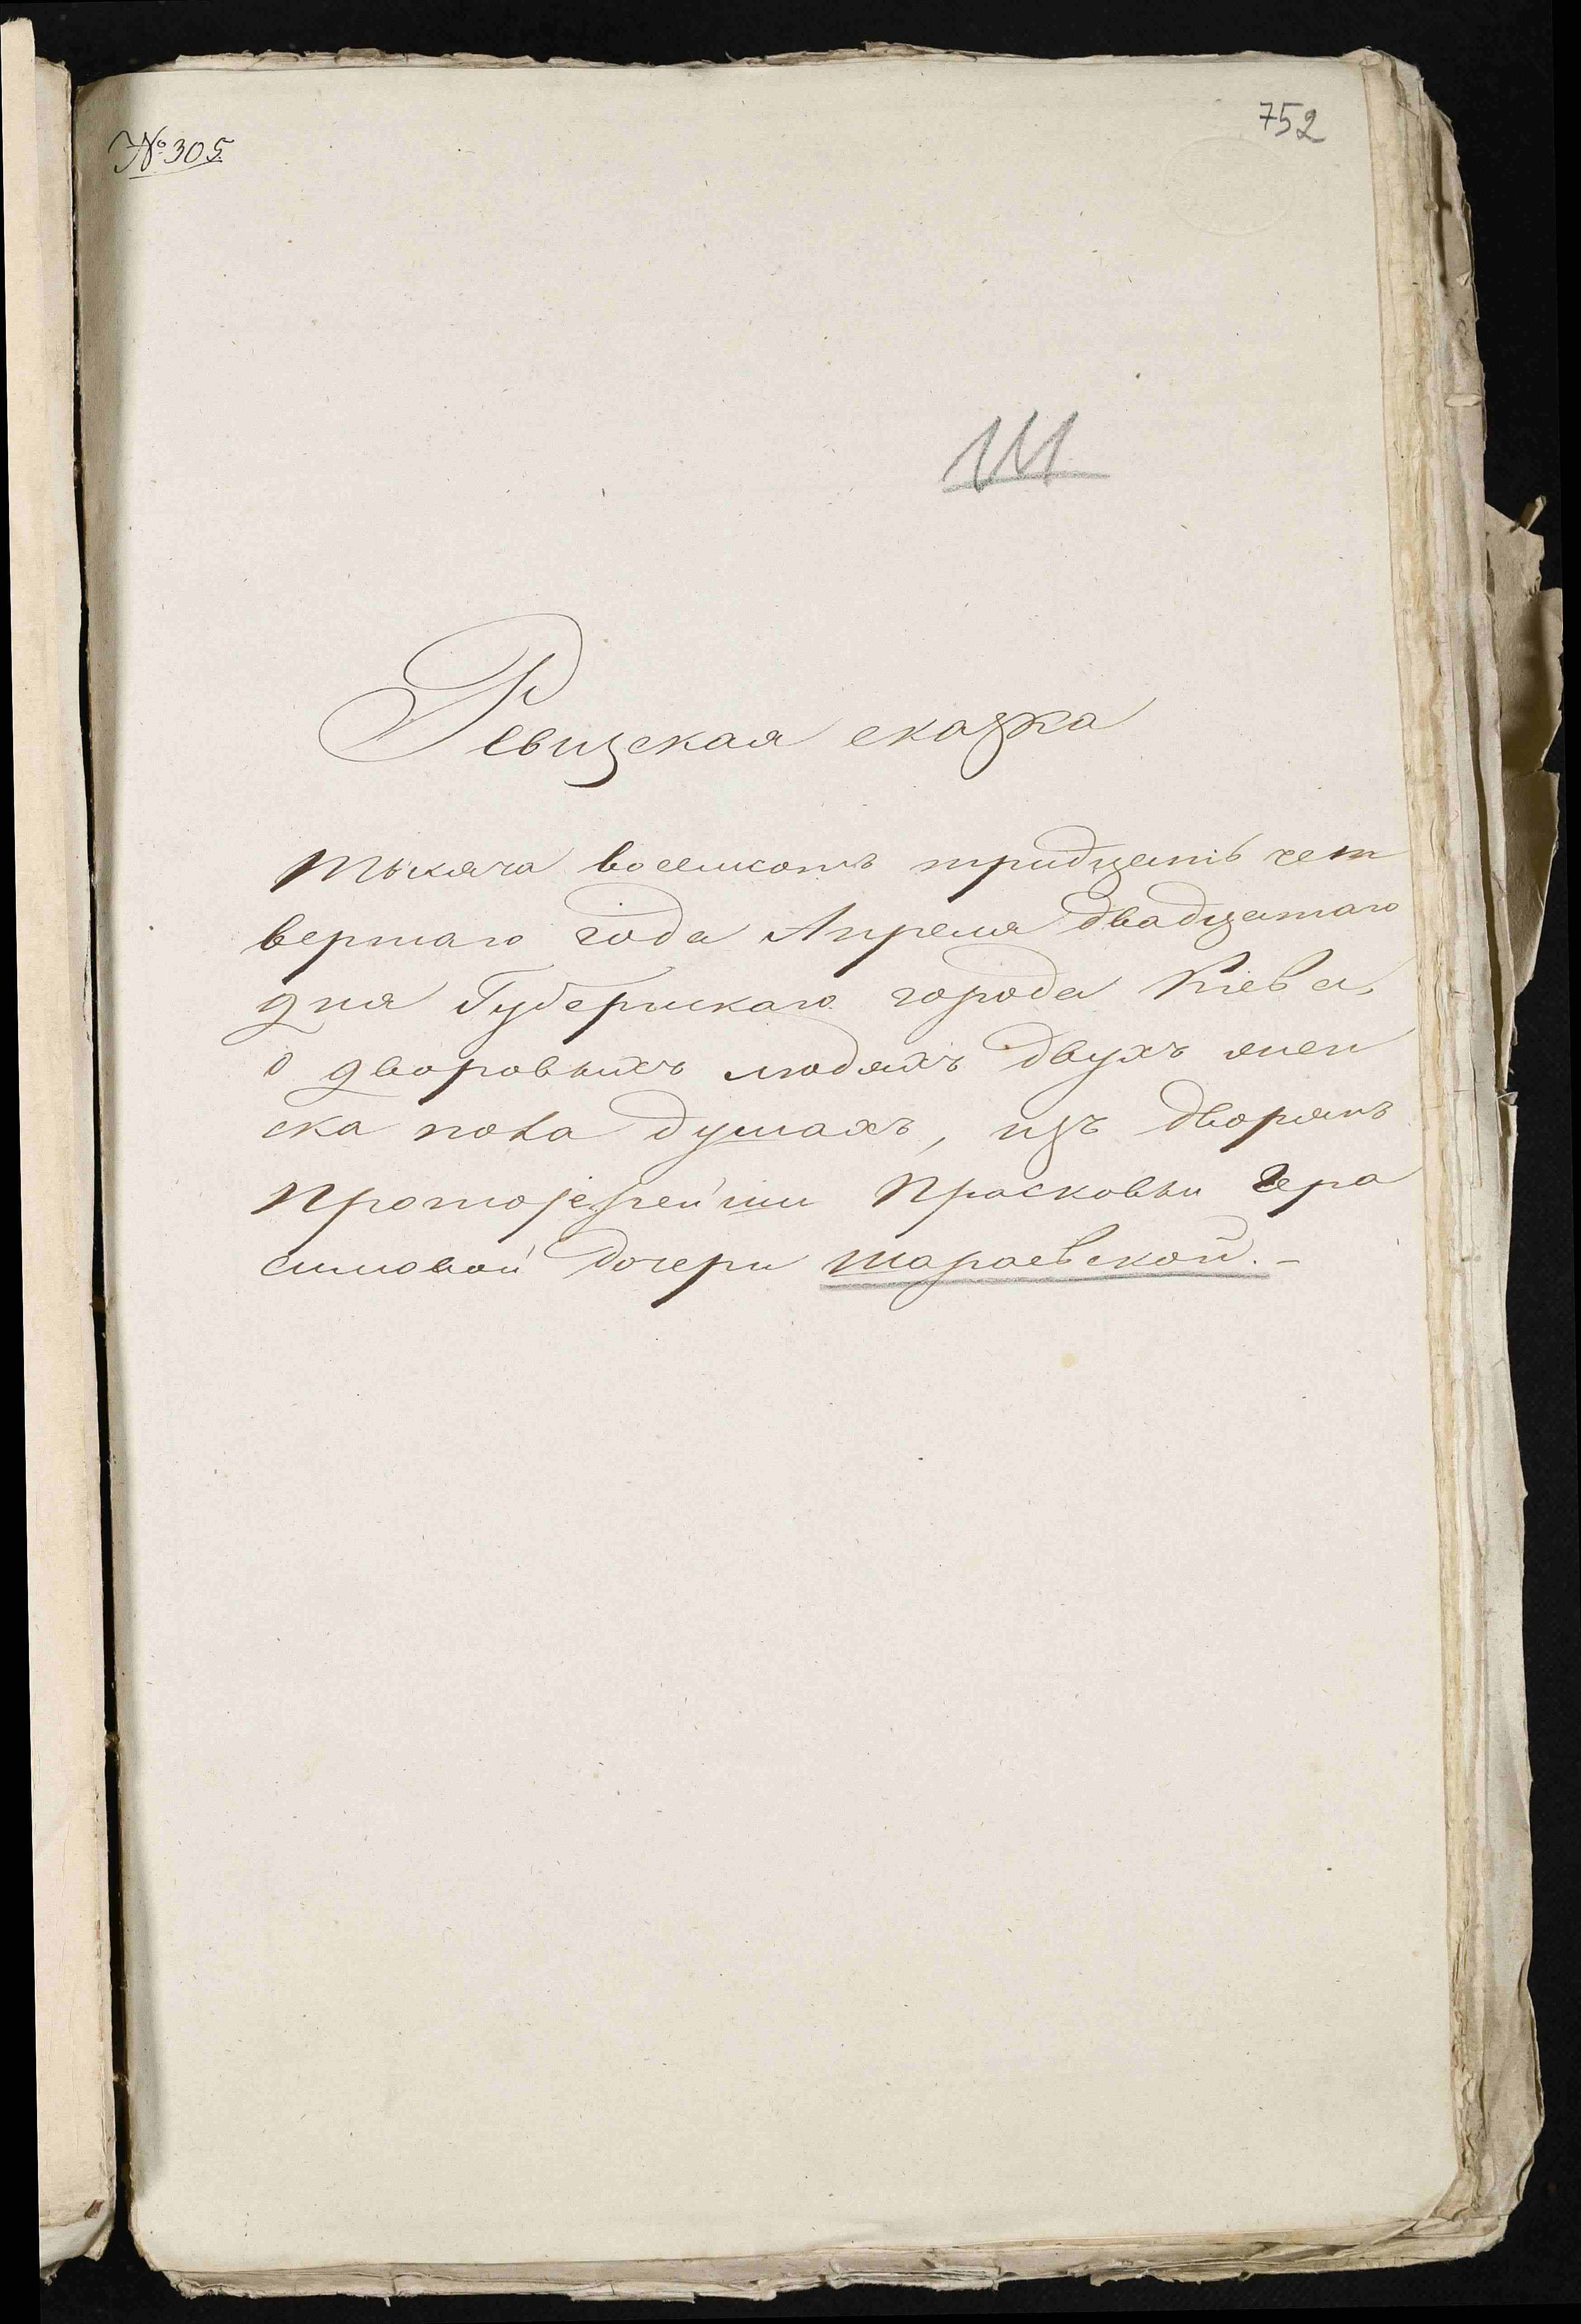 № 305.
752
111
Ревизская сказка
тысяча восемсотъ тридцать чет
вертаго года Апреля двадцатаго
дня Губернскаго города Кіева,
о дворовыхъ людяхъ двухъ жен
ска пола душахъ, изъ дворянъ
Протоjерейши Прасковьи Гера
симовой дочери Шараевской.-